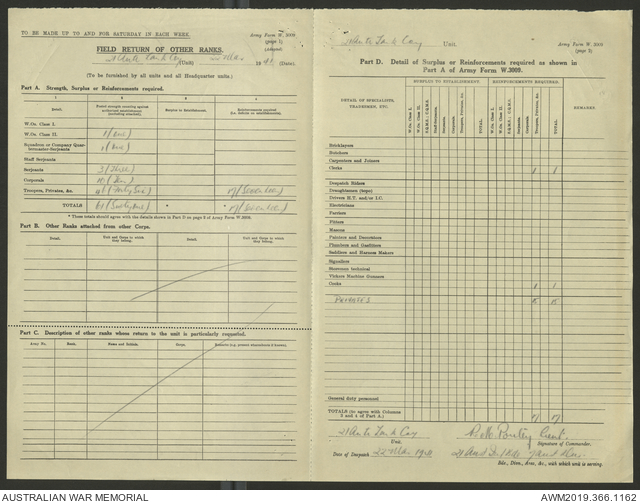 TO BE MADE UP TO AND FOR SATURDAY IN EACH WEEK.
Army Form W. 3009
(page 1)
(Adapted)
FIELD RETURN OF OTHER RANKS.
21 Anti Tank Coy (Unit) 22 Mar 1941 (Date)
(To be furnished by all units and all Headquarter units.)
Part A. Strength, Surplus or Reinforcements required.
1 2 3 4
Detail.
Surplus to Establishment.
Reinforcements required
W.Os. Class I.
W.Os. Class II. 1 (One)
Squadron or Company Quartermaster-Serjeants 1 (One)
Staff Serjeants
Serjeants 3 (Three)
Corporals 10 (Ten)
Troopers, Privates, &c. 46 (Forty Six) 17 (Seventeen)
TOTALS 61 (Sixty One) 17 (Seventeen)
* These totals should agree with the details shown in Part D on page 2 of Army Form W.3009.
Part B. Other Ranks attached from other Corps.
Detail. Unit and Corps to which they belong. Detail. Unit and Corps to which they belong.
Part C. Description of other ranks whose return to the unit is particularly requested.
Army No. Rank. Name and Initials. Corps. Remarks (e.g., present whereabouts if known).
21 Anti Tank Coy Unit.
Army Form W. 3009
(page 2)
Part D. Detail of Surplus or Reinforcements required as shown in
Part A of Army Form W.3009.
SURPLUS TO ESTABLISHMENT. REINFORCEMENTS REQUIRED.
DETAIL OF SPECIALISTS, TRADESMEN, ETC.
W.Os. Class I. W.Os. Class II. S.Q.M.S., C.Q.M.S. Staff-Serjeants. Serjeants. Corporals. Troopers, Privates, &c. TOTAL.
W.Os. Class I. W.Os. Class II. S.Q.M.S., C.Q.M.S. Serjeants. Corporals. Troopers, Privates, &c. TOTAL.
REMARKS.
Bricklayers
Butchers
Carpenters and Joiners
Clerks 1 1
Despatch Riders
Draughtsmen (topo)
Drivers H.T. and/or I.C.
Electricians
Farriers
Fitters
Masons
Painters and Decorators
Plumbers and Gasfitters
Saddlers and Harness Makers
Signallers
Storemen technical
Vickers Machine Gunners
Cooks 1 1
PRIVATES 15 15
General duty personnel
TOTALS (to agree with Columns 3 and 4 of Part A). 17 17
21 Anti Tank Coy
Unit.
Signature of Commander.
Date of Despatch 22 Mar 1941
Bde., Divn., Area, &c., with which unit is serving.
AUSTRALIAN WAR MEMORIAL
AWM2019.366.1162